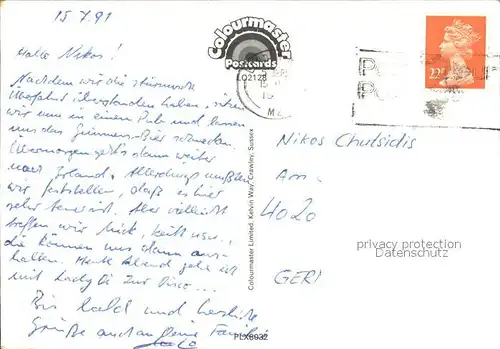 15.7.91
Hallo Nikos!
Nachdem wir die stürmische
Überfahrt überstanden haben, sitzen
wir nun in einem Pub und lassen
uns das Guinness-Bier schmecken.
Übermorgen geht's dann weiter
nach Irland. Allerdings mußten
wir feststellen, daß es hier
sehr teuer ist. Aber vielleicht
treffen wir Mick, Keith usw.,
die können uns dann aus-
halten. Heute Abend gehe ich
mit Lady Di zur Disco...
Bis bald und herzliche
Grüße auch an Deine Familie
Colourmaster
Postcards
LO2128
22
Colourmaster Limited, Kelvin Way, Crawley, Sussex
PLX8932
Nikos Chutsidis
Am
4020
GER
privacy protection
Datenschutz